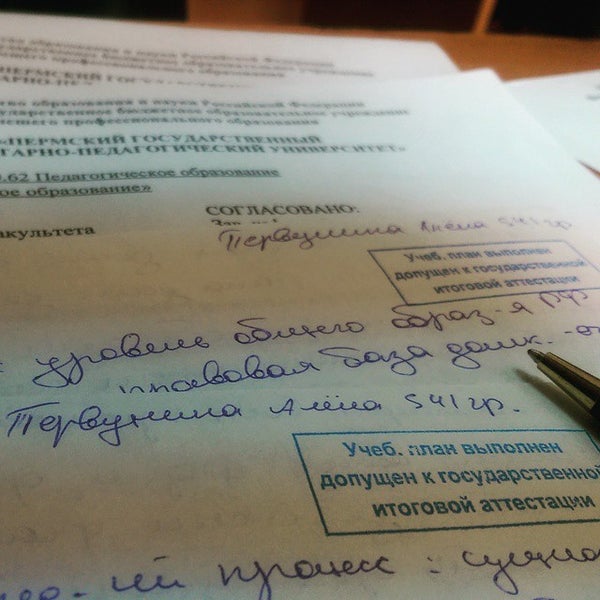 образования и науки Российской Федерации
«ПЕРМСКИЙ ГОС
образования и науки Российской Федерации
государственное бюджетное образовательное учреждение
высшего профессионального образования
«ПЕРМСКИЙ ГОСУДАРСТВЕННЫЙ
ГАРНО-ПЕДАГОГИЧЕСКИЙ УНИВЕРСИТЕТ»
.62 Педагогическое образование
ое образование»
СОГЛАСОВАНО:
акультета
Первушина Алёна 541 гр.
Учеб. план выполнен
допущен к государственной
итоговой аттестации
: уровень общего образ-я РФ
правовая база дошк.
Первушина Алёна 541 гр.
Учеб. план выполнен
допущен к государственной
итоговой аттестации
процесс :